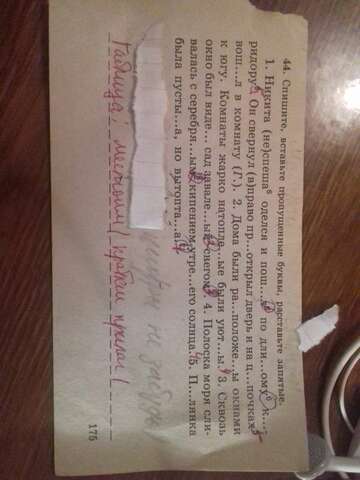 44. Спишите, вставьте пропущенные буквы, расставьте запятые.
1. Никита (не)спеша⁶ оделся и пош...л по дли...ому к...-
ридору⁴. Он свернул (в)право пр...открыл дверь и на ц...почках³
вош...л в комнату (Г.). 2. Дома были ра...положе...ы окнами
к югу. Комнаты жарко натопле...ые были уют...ы.⁴ 3. Сквозь
окно был виде... сад завале...ый снегом. 4. Полоска моря сли-
валась с серебря...ым кипением утре...его солнца.⁴ 5. П...лянка
была пусты...а, но вытопта...а.
Таблица: местоим / краткая прилаг /
175